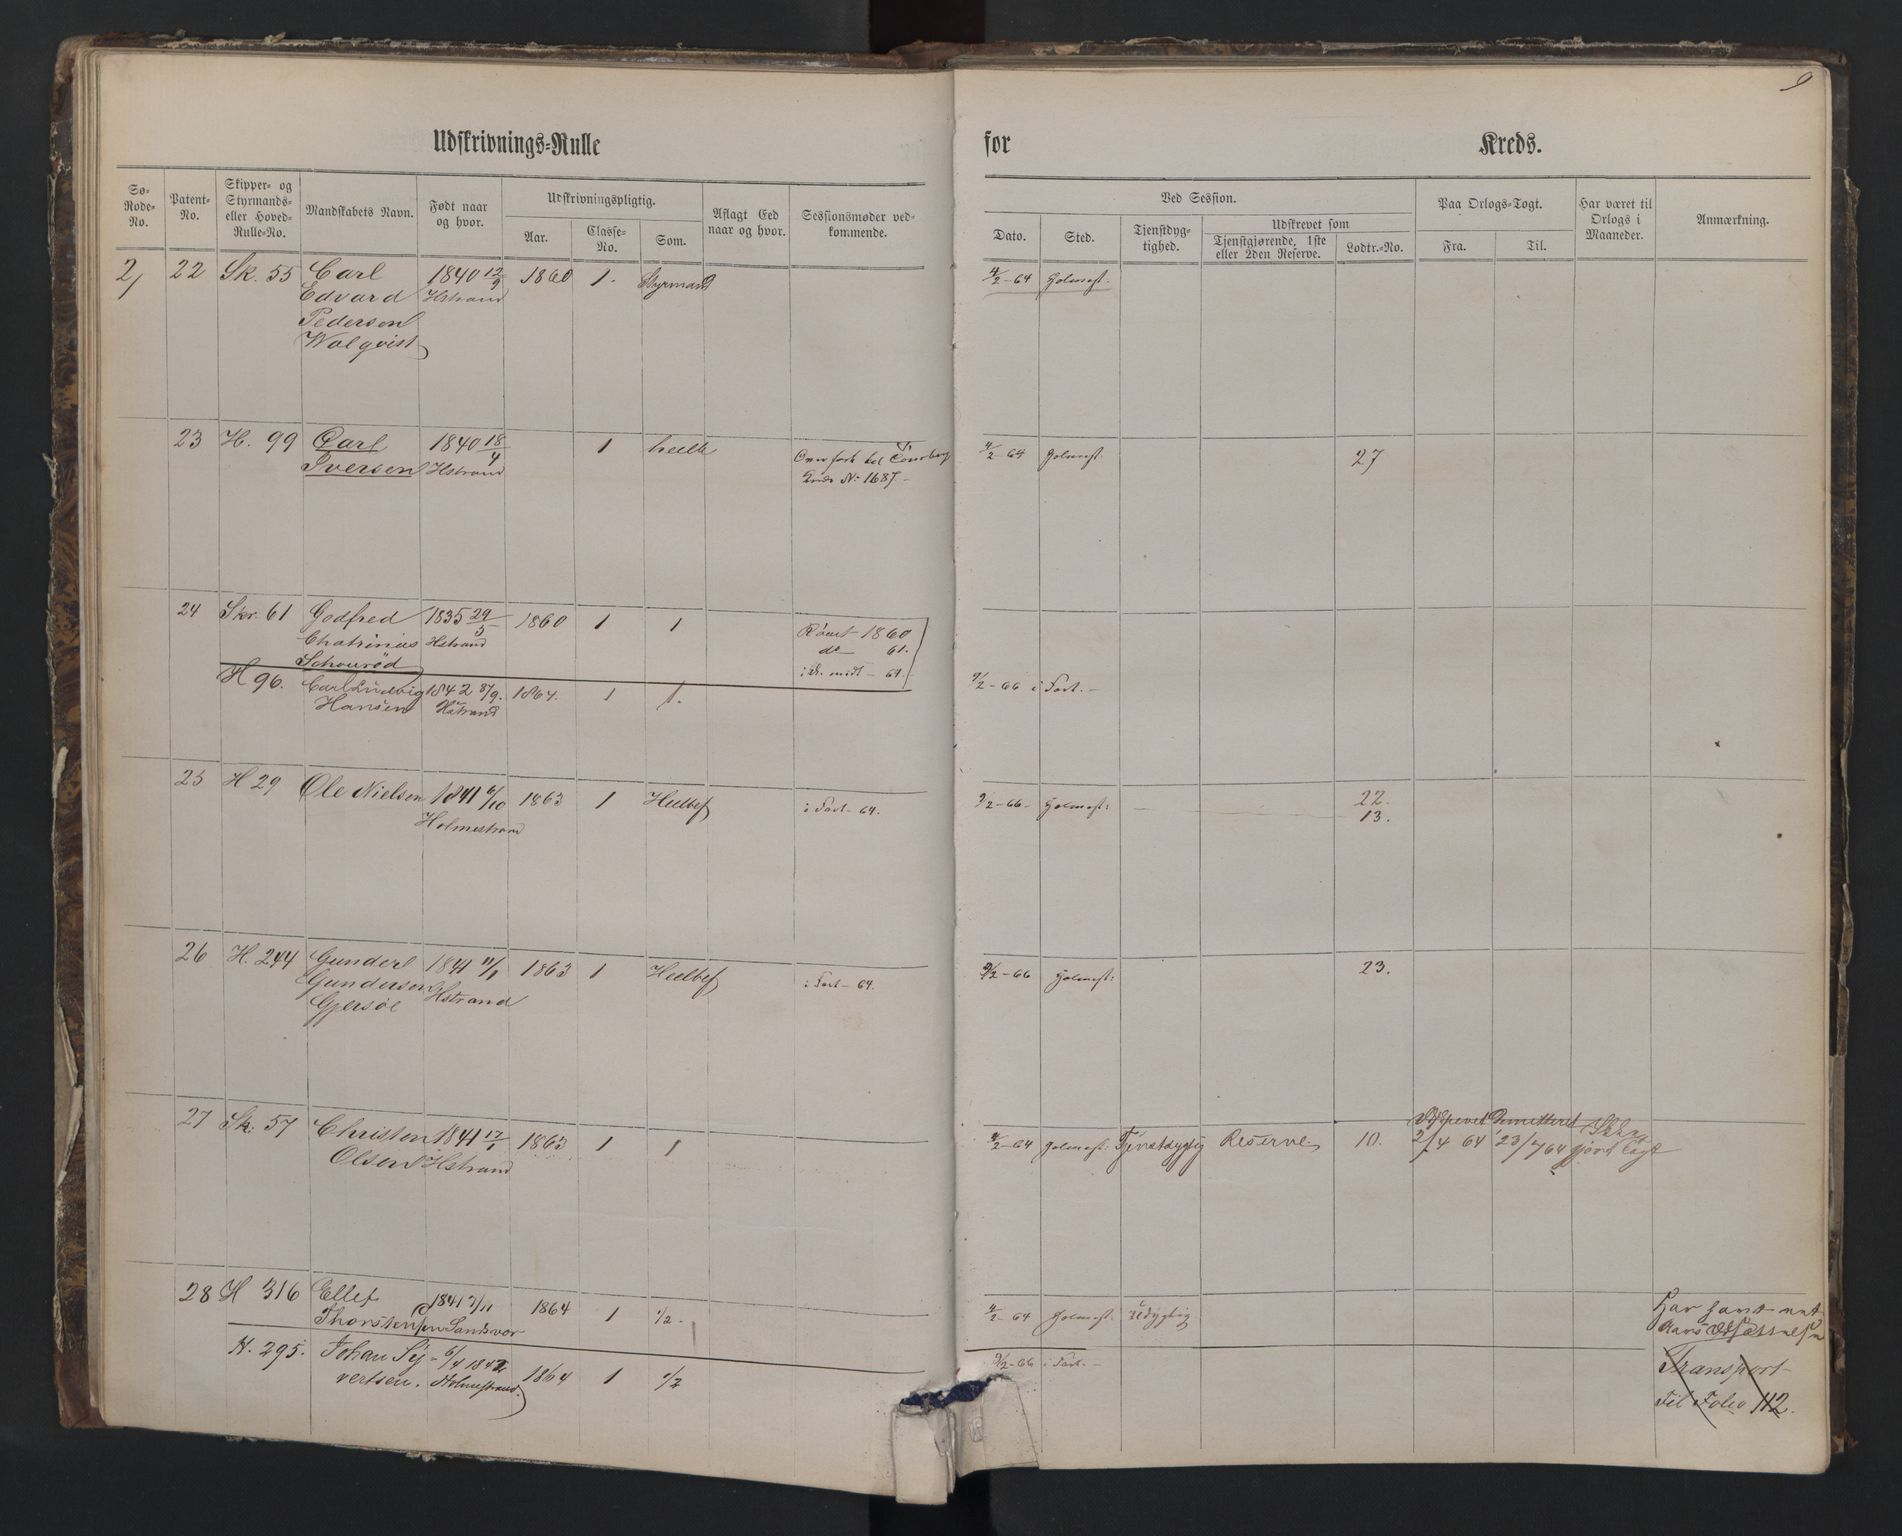 9
Udskrivnings-Rulle for Kreds.
Sø-Rode-No. Patent-No. Skipper- og Styrmands- eller Hoved-Rulle-No. Mandskabets Navn. Født naar og hvor. Udskrivningspligtig. Aar. Classe-No. Som. Aflagt Eed naar og hvor. Sessionsmøder vedkommende.
Ved Session. Dato. Sted. Tjenstdygtighed. Udskrevet som Tjenstgjørende, 1ste eller 2den Reserve. Lodtr.-No. Paa Orlogs-Togt. Fra. Til. Har været til Orlogs i Maaneder. Anmærkning.
2, 22 Sk. 55 Carl 1840 12/9 1860 1. Styrmand 4/2-64 Holmest:
Edvard Hstrand
Pedersen
Walqvist
23 H. 99 Carl 1840 18/4 1 heelb 4/2-64 Holmest. 27
Iversen Hstrand
No 1687-
24 Skr. 61 Godfred 1835 29/5 1860 1 1 Rømt 1860
Chatrinus Hstrand do 61.
Schourød
H 96. Carl Ludvig 1842 1864. 1 1. 9/2-66 i Fart.-
Hansen Hstrand
25 H 29 Ole Nielsen 1841 6/10 1863 1 Heelbef i Fart- 64. 9/2-66- Holmest: 22.
Holmestrand 13.
26 H. 244 Gunder 1841 11/1 1863 1 Heelbef i Fart- 64. 9/2-66 Holmest: 23.
Gundersen Hstrand
Gjersøe
27 Sk. 57 Christen 1841 17/1 1863 1 1 4/2-64 Holmest: Tjenstdygtig Reserve 10. 2/4 64 23/7 64
Olsen Hstrand
28 H 316 Ellef 1841 3/11 1864 1 1/2. 4/2-64 Holmest. udygtig Har havt
Thorstensen Sandsvær Aars Udsættelse
H. 295. Johan Sy- 6/4 1842 1864 1 1/2 9/2-66 i Fart.- Transport
vertsen. Holmestrand. til Folio 112.